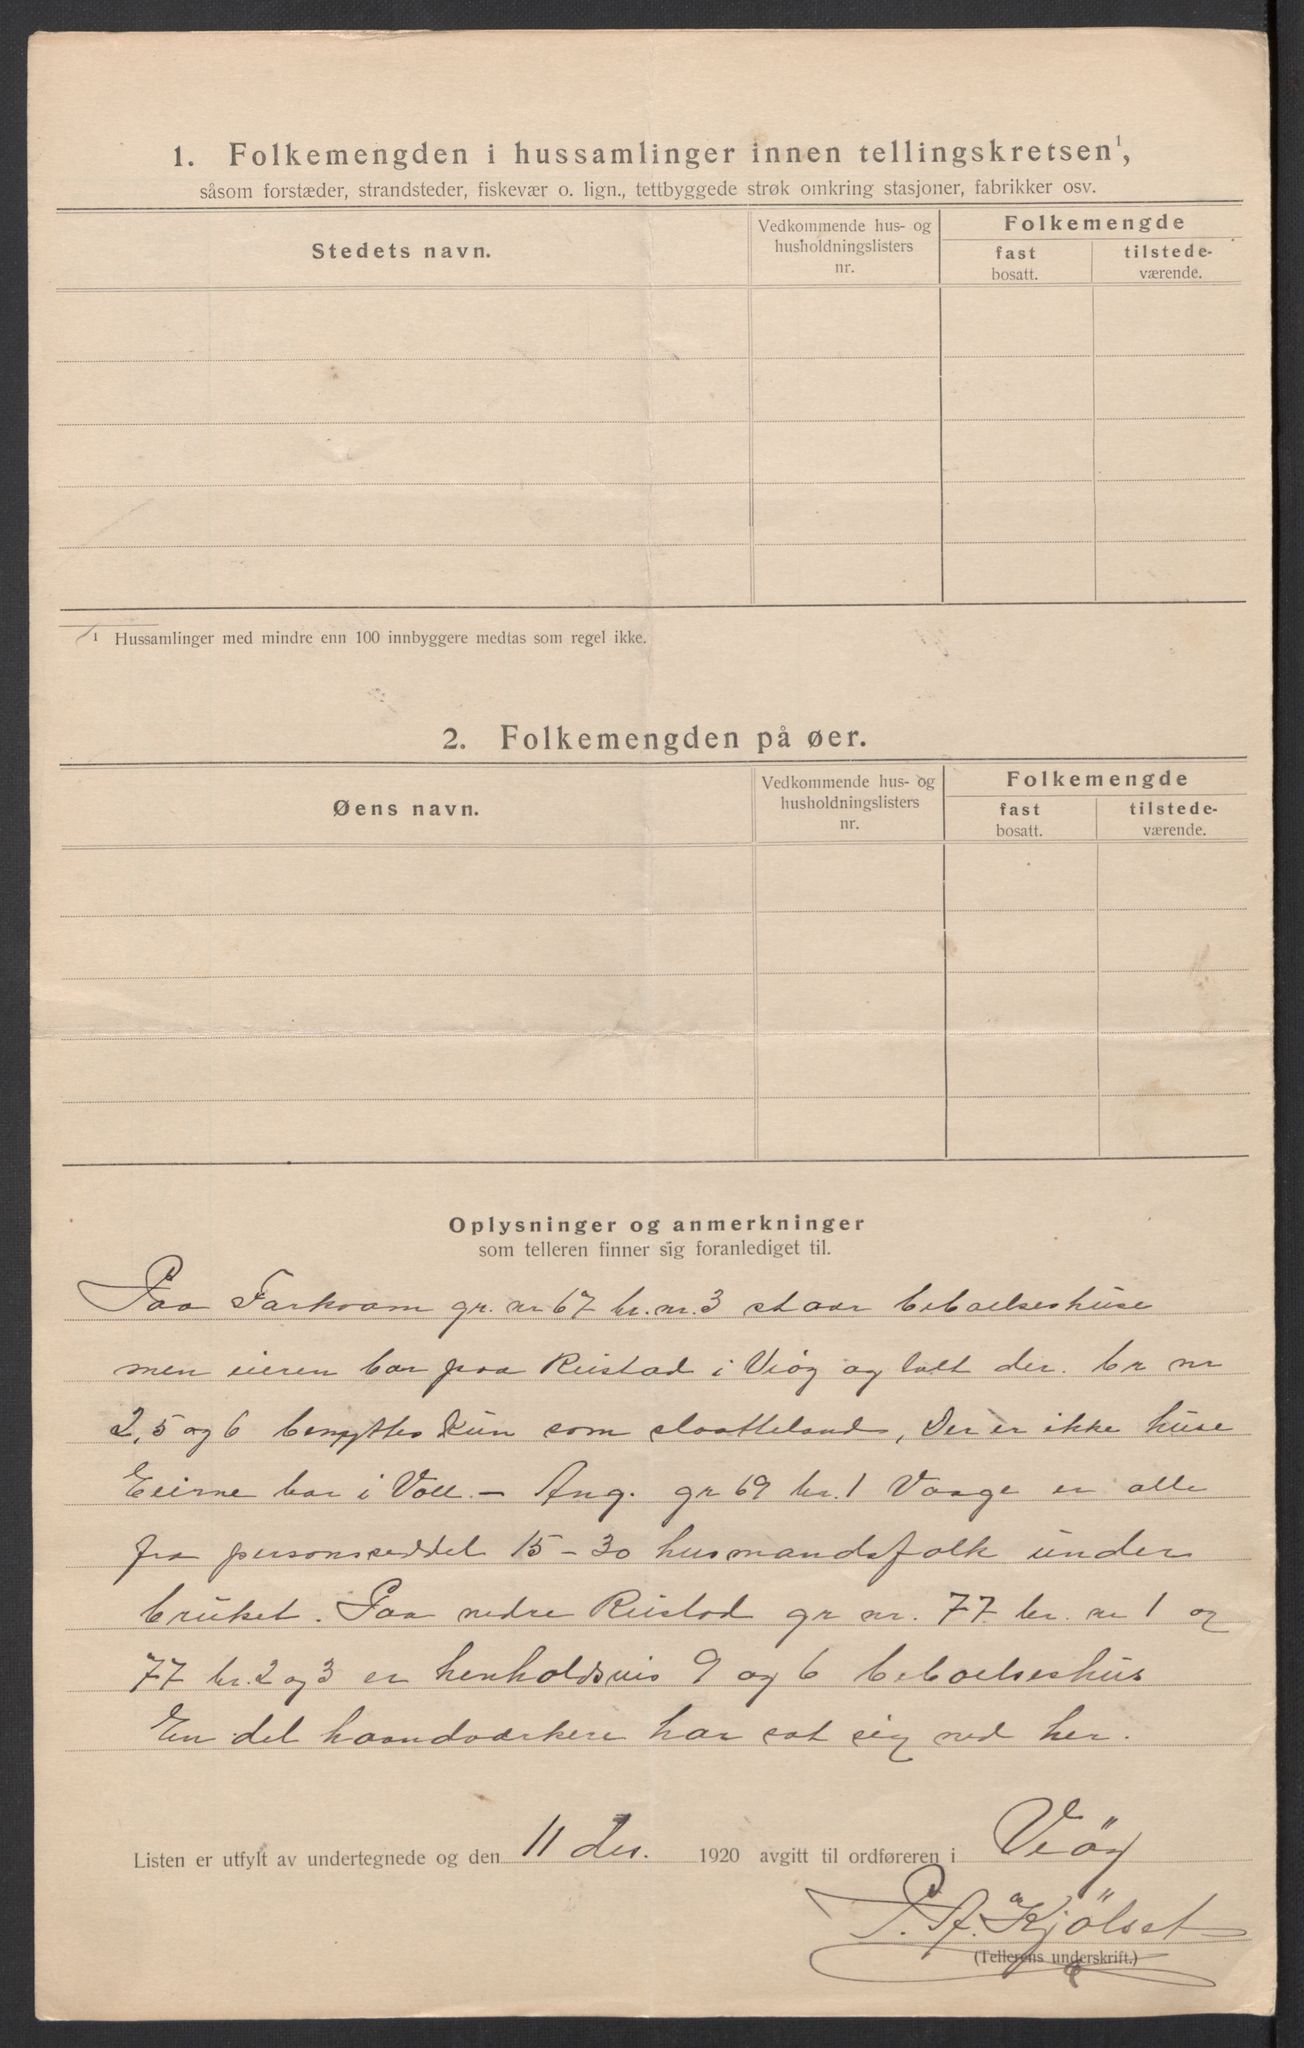 1. Folkemengden i hussamlinger innen tellingskretsen¹,
såsom forstæder, strandsteder, fiskevær o. lign., tettbyggede strøk omkring stasjoner, fabrikker osv.
Stedets navn.
Vedkommende hus- og
husholdningslisters
nr.
Folkemengde
fast
bosatt.
tilstede-
værende.
¹ Hussamlinger med mindre enn 100 innbyggere medtas som regel ikke.
2. Folkemengden på øer.
Øens navn.
Vedkommende hus- og
husholdningslisters
nr.
Folkemengde
fast
bosatt.
tilstede-
værende.
Oplysninger og anmerkninger
som telleren finner sig foranlediget til.
Paa Farkvam gr. nr 67 br. nr. 3 staar beboelseshuse
men eieren bor paa Reistad i Veöy og talt der. br nr
2, 5 og 6 benyttes kun som slaatteland, Der er ikke huse
Eierne bor i Voll. - Ang. gr 69 br. 1 Vaage er alle
fra personseddel 15-30 husmandsfolk under
bruket. Paa nedre Reistad gr nr. 77 br. nr 1 og
77 br. 2 og 3 er henholdsvis 9 og 6 beboelseshus
En del haandværkere har sat sig ned her.
Listen er utfylt av undertegnede og den 11 des. 1920 avgitt til ordføreren i Veöy
P. A. Kjölset
(Tellerens underskrift.)